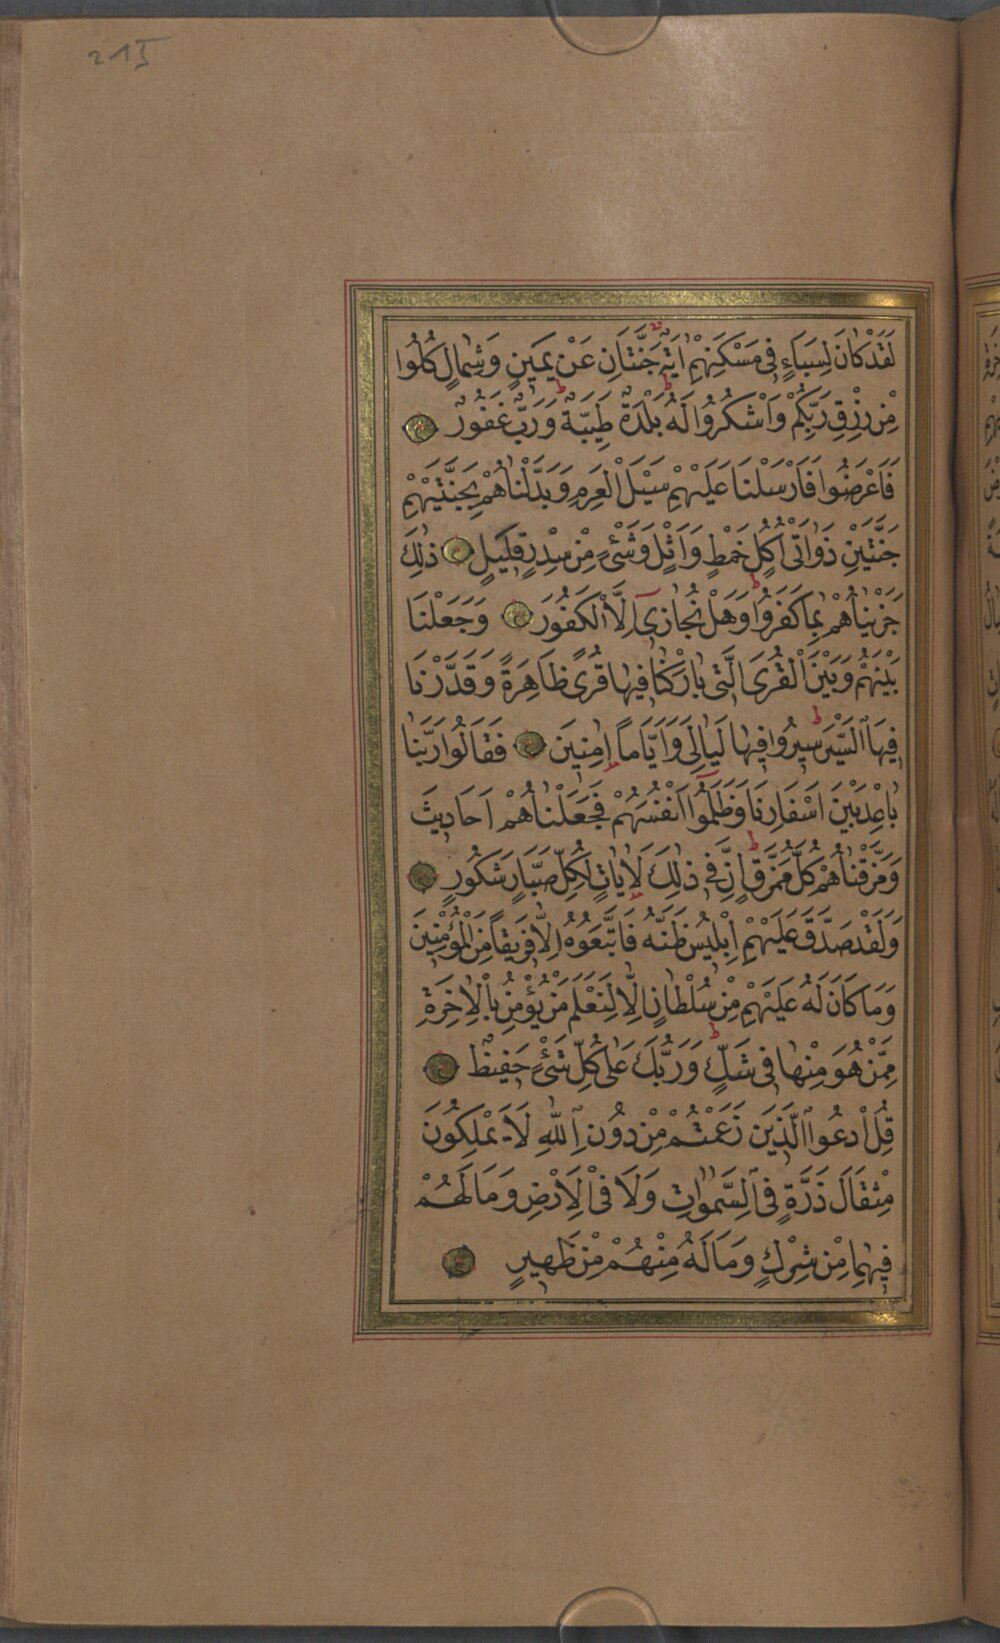 215
لَقَدْ كَانَ لِسَبَاءٍ فِى مَسْكَنِهِمْ اٰيَةٌ جَنَّتَانِ عَنْ يَمِينٍ وَشِمَالٍ كُلُوا
مِنْ رِزْقِ رَبِّكُمْ وَاشْكُرُوا لَهُ بَلْدَةٌ طَيِّبَةٌ وَرَبٌّ غَفُورٌ
فَاَعْرَضُوا فَاَرْسَلْنَا عَلَيْهِمْ سَيْلَ الْعَرِمِ وَبَدَّلْنَاهُمْ بِجَنَّتَيْهِمْ
جَنَّتَيْنِ ذَوَاتَىْ اُكُلٍ خَمْطٍ وَاَثْلٍ وَشَىْءٍ مِنْ سِدْرٍ قَلِيلٍ ذٰلِكَ
جَزَيْنَاهُمْ بِمَا كَفَرُوا وَهَلْ نُجَازِى اِلَّا الْكَفُورَ وَجَعَلْنَا
بَيْنَهُمْ وَبَيْنَ الْقُرَى الَّتِى بَارَكْنَا فِيهَا قُرًى ظَاهِرَةً وَقَدَّرْنَا
فِيهَا السَّيْرَ سِيرُوا فِيهَا لَيَالِىَ وَاَيَّامًا اٰمِنِينَ فَقَالُوا رَبَّنَا
بَاعِدْ بَيْنَ اَسْفَارِنَا وَظَلَمُوا اَنْفُسَهُمْ فَجَعَلْنَاهُمْ اَحَادِيثَ
وَمَزَّقْنَاهُمْ كُلَّ مُمَزَّقٍ اِنَّ فِى ذٰلِكَ لَاٰيَاتٍ لِكُلِّ صَبَّارٍ شَكُورٍ
وَلَقَدْ صَدَّقَ عَلَيْهِمْ اِبْلِيسُ ظَنَّهُ فَاتَّبَعُوهُ اِلَّا فَرِيقًا مِنَ الْمُؤْمِنِينَ
وَمَا كَانَ لَهُ عَلَيْهِمْ مِنْ سُلْطَانٍ اِلَّا لِنَعْلَمَ مَنْ يُؤْمِنُ بِالْاٰخِرَةِ
مِمَّنْ هُوَ مِنْهَا فِى شَكٍّ وَرَبُّكَ عَلٰى كُلِّ شَىْءٍ حَفِيظٌ
قُلِ ادْعُوا الَّذِينَ زَعَمْتُمْ مِنْ دُونِ اللّٰهِ لَا يَمْلِكُونَ
مِثْقَالَ ذَرَّةٍ فِى السَّمٰوَاتِ وَلَا فِى الْاَرْضِ وَمَا لَهُمْ
فِيهِمَا مِنْ شِرْكٍ وَمَا لَهُ مِنْهُمْ مِنْ ظَهِيرٍ